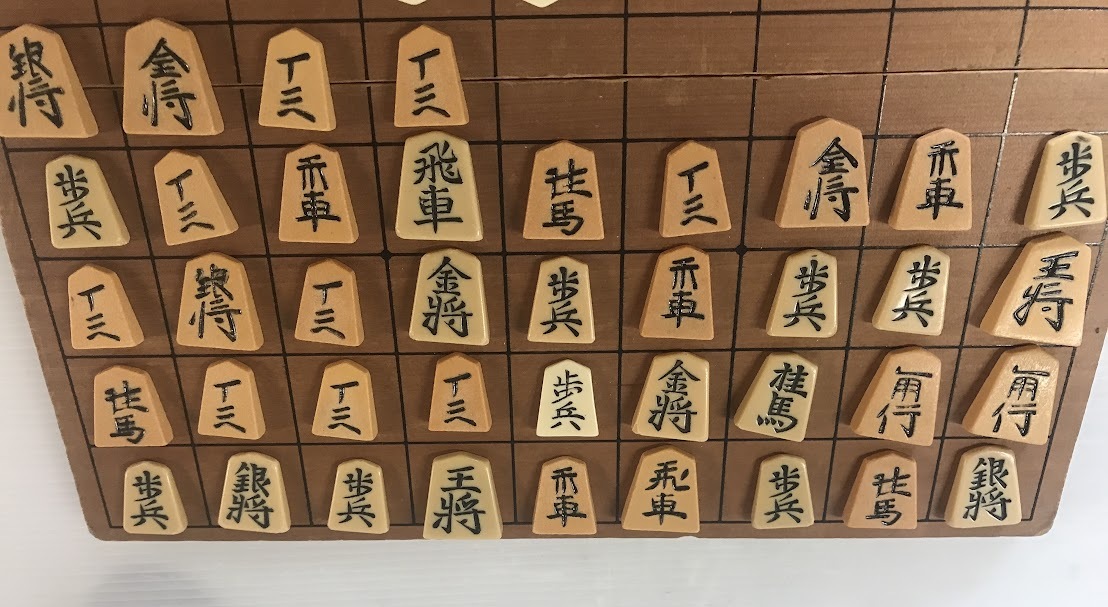 銀将 金将 丁三 丁三
歩兵 丁三 香車 飛車 桂馬 丁三 金将 香車 歩兵
丁三 銀将 丁三 金将 歩兵 香車 歩兵 歩兵 王将
桂馬 丁三 丁三 丁三 歩兵 金将 桂馬 角行 角行
歩兵 銀将 歩兵 王将 香車 飛車 歩兵 桂馬 銀将